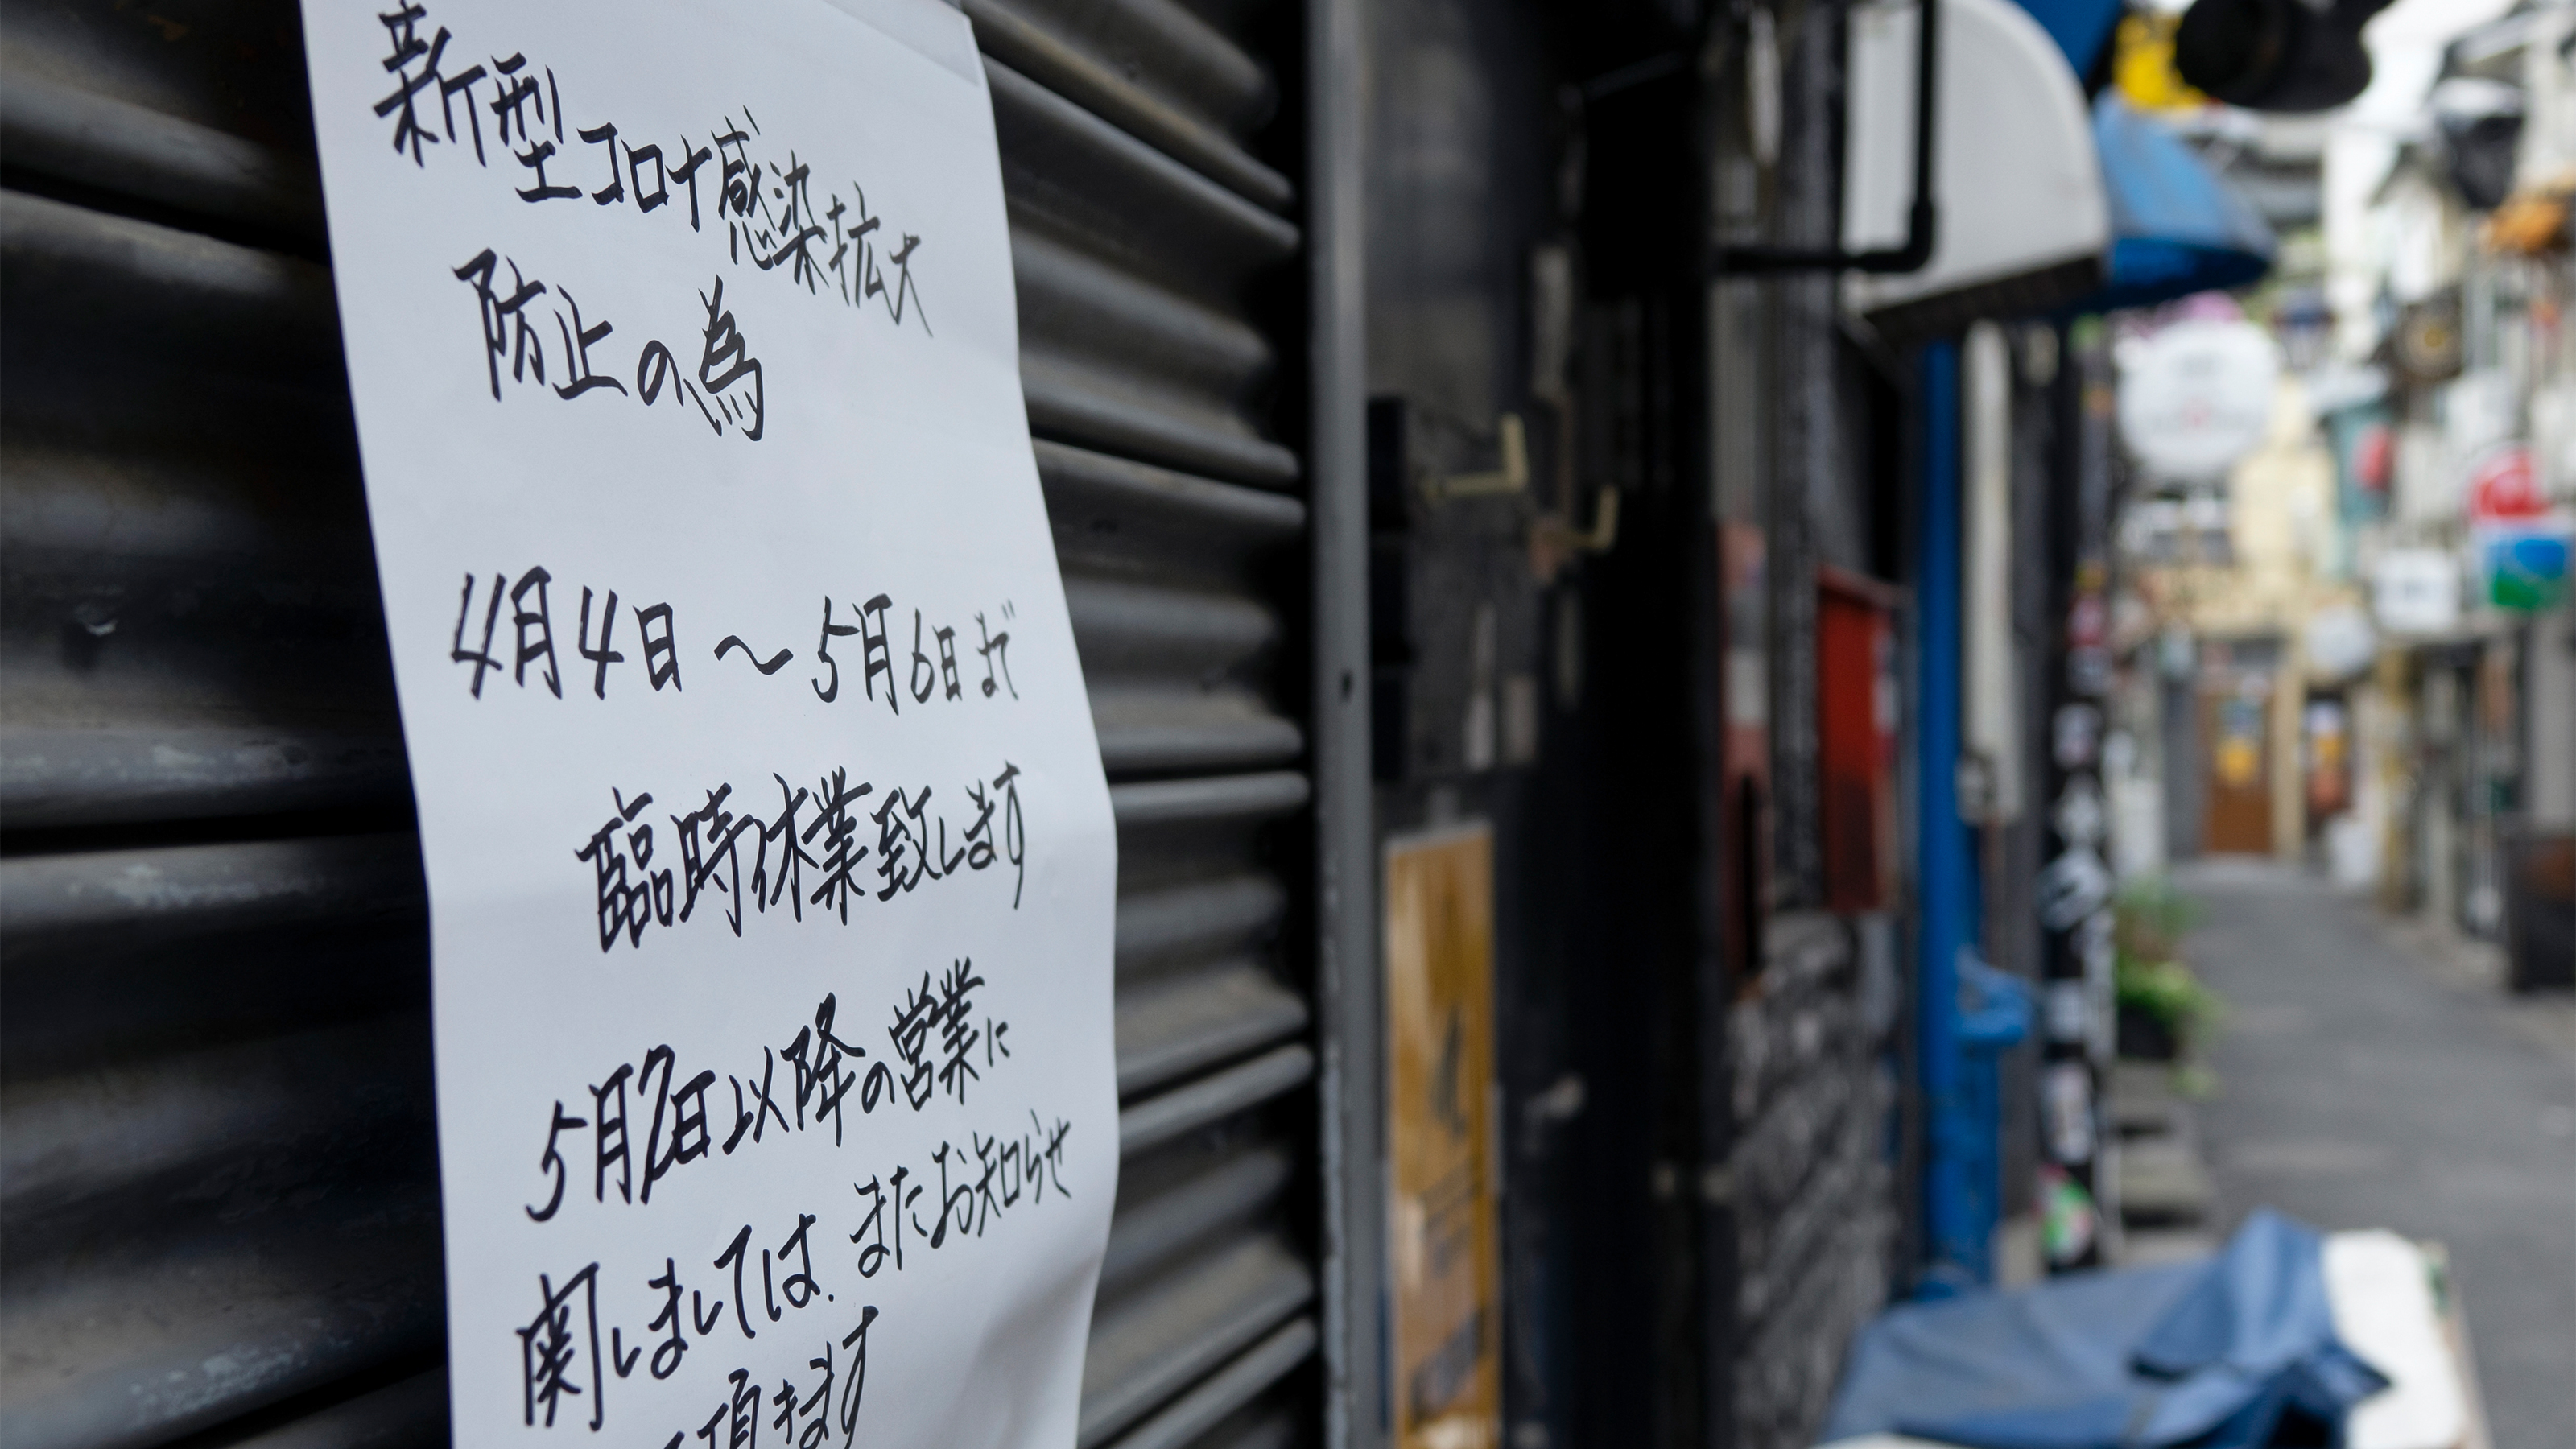 新型コロナ感染拡大
防止の為
4月4日～5月6日まで
臨時休業致します
5月2日以降の営業に
関しましては、またお知らせ
頂きます